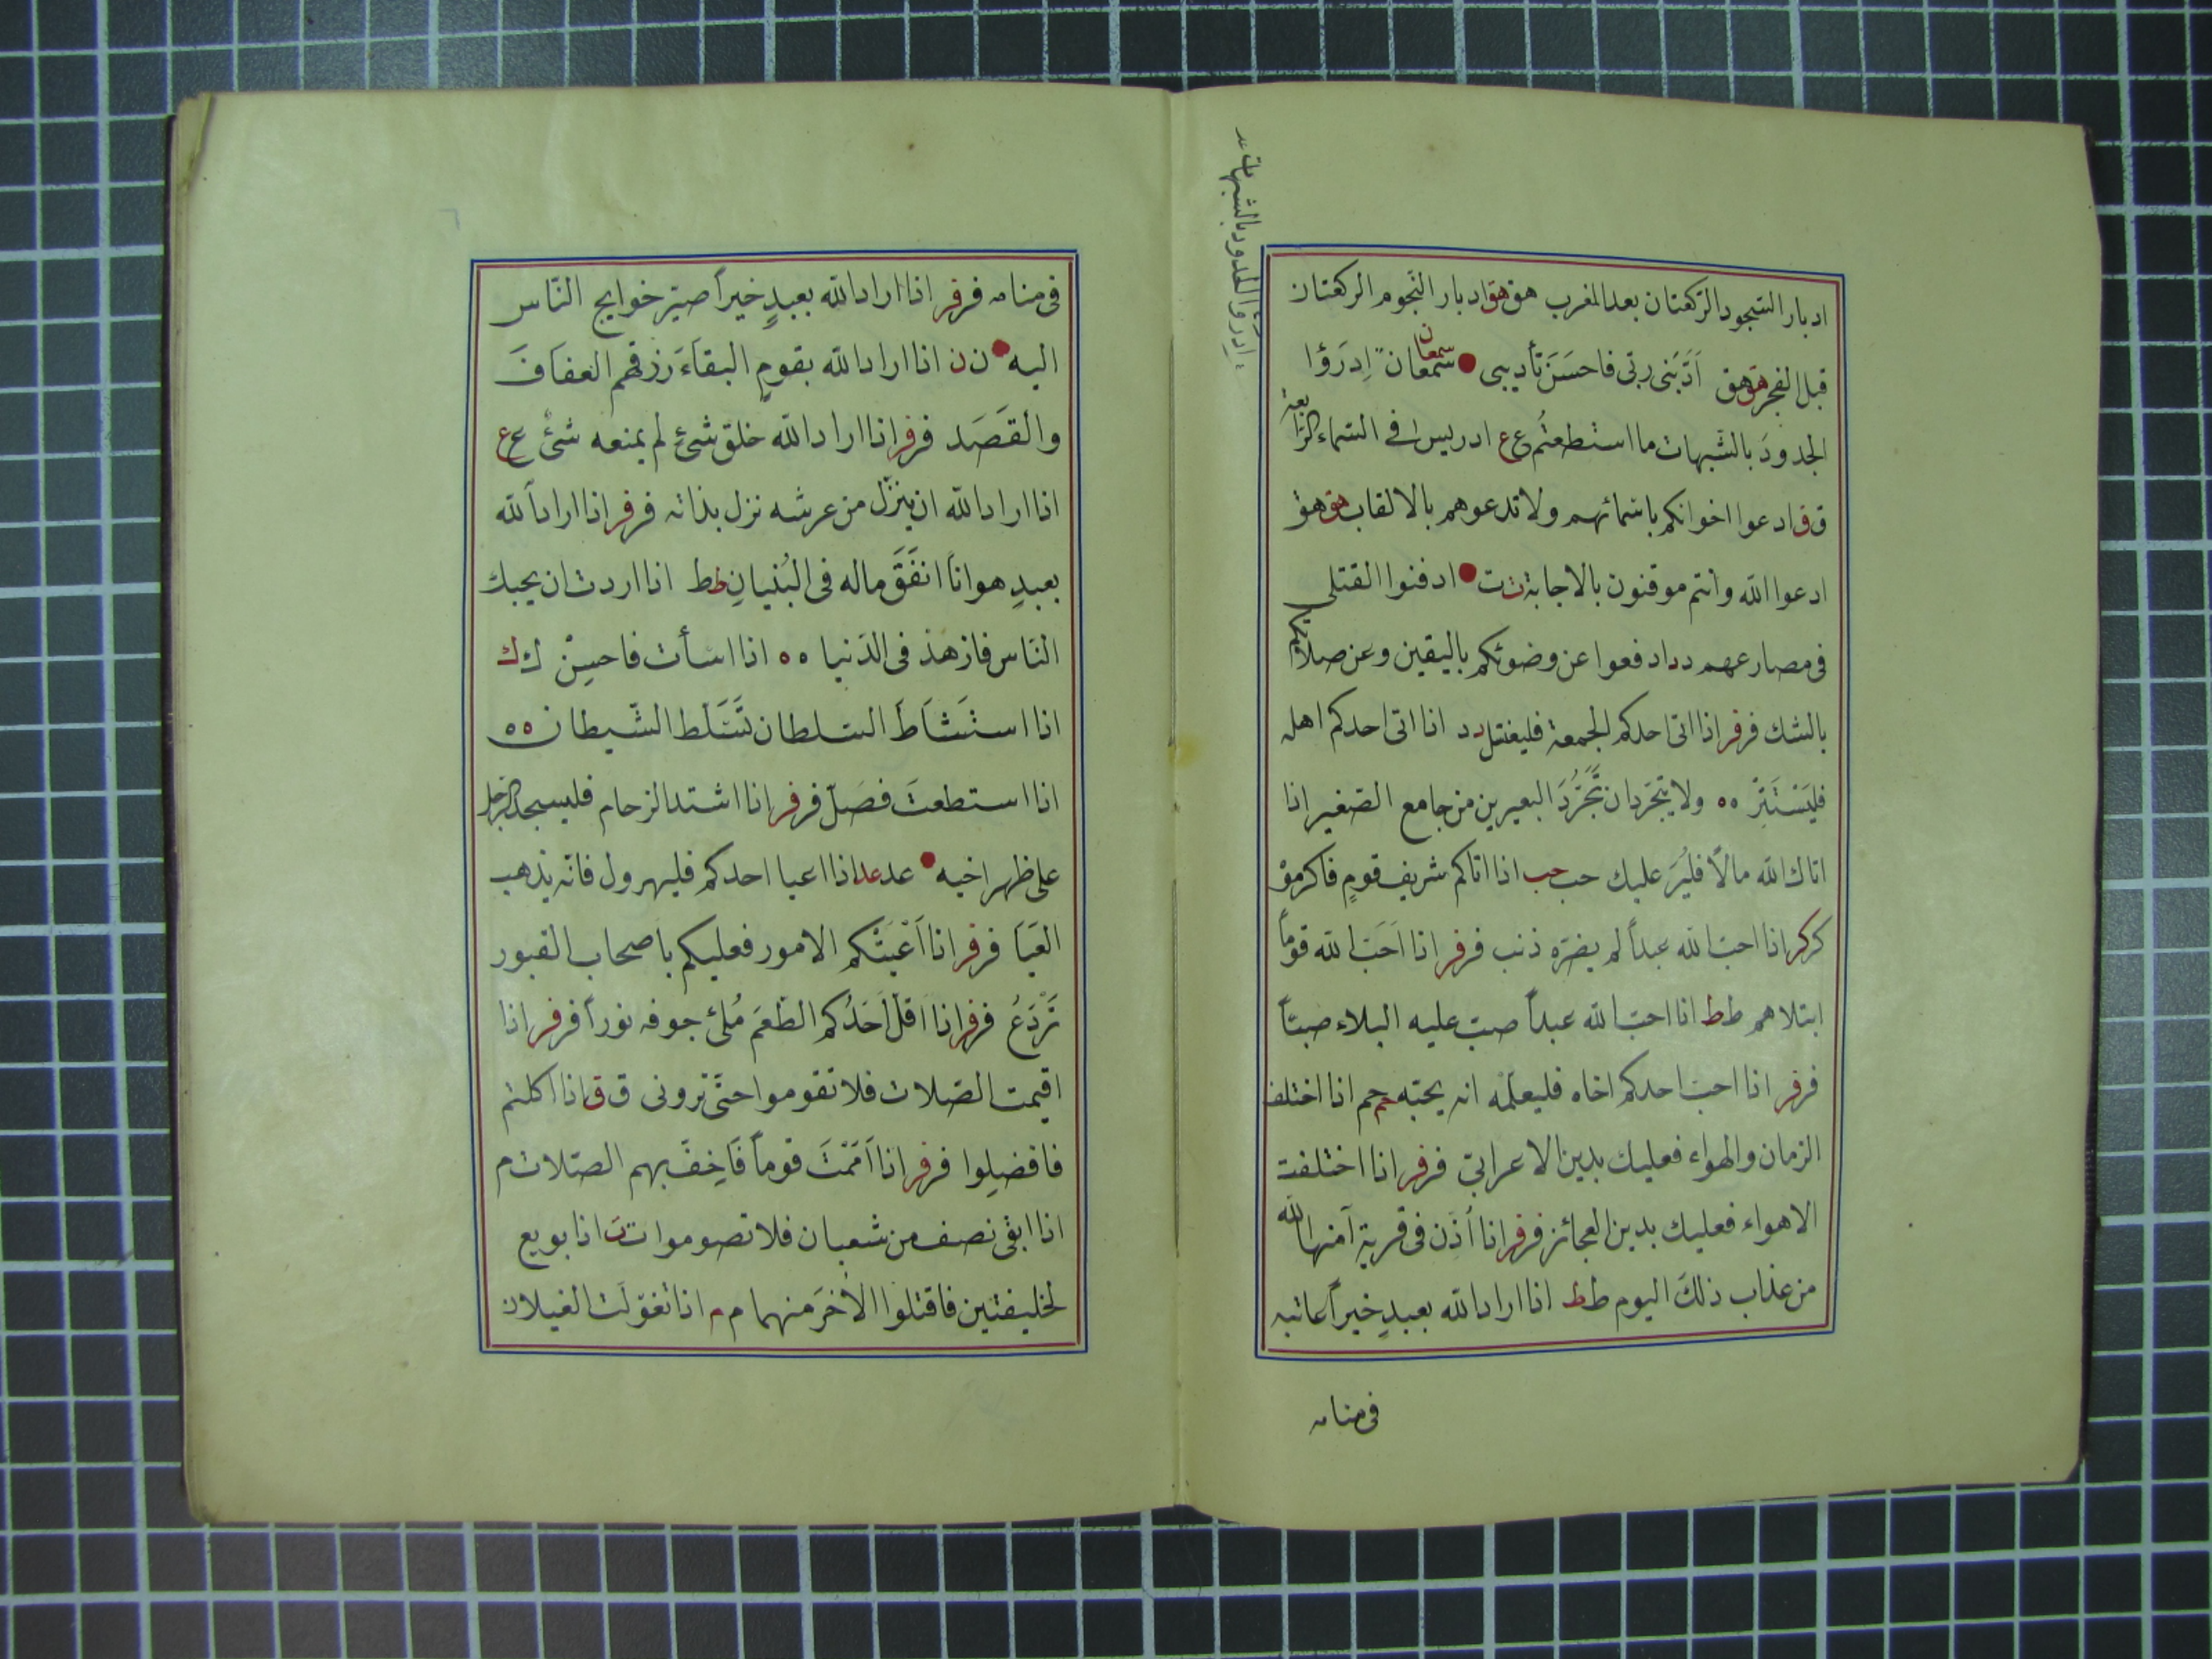 ادبار السّجود الرّكعتان بعد المغرب هق هق ادبار النّجوم الركعتان
قبل الفجر هق هق اَدَّبَنى ربّى فاحسَنَ تأديبى سمعان سمعان اِدرَؤا
الحدودَ بالشّبهات ما استطعتُم ع ع ادريس فى السّماء الرّابعة
ق ق ادعوا اخوانكم باسمائهم ولا تدعوهم بالالقاب هق هق
ادعوا اللّه وانتم موقنون بالاجابة ت ت ادفنوا القتلى
فى مصارعهم د د ادفعوا عن وضوئكم باليقين وعن صلاتكم
بالشك فر فر اذا اتى احدكم الجمعة فليغتسل د د اذا اتى احدكم اهله
فليَسْتَتِرْ ه ه ولا يتجَرّدان تَجَرُّدَ البعيرين من جامع الصّغير اذا
اتاك اللّه مالًا فليُرَ عليك حب حب اذا اتاكم شريف قومٍ فاكرموْ
كر كر اذا احبّ اللّه عبداً لم يضرّه ذنب فر فر اذا اَحَبّ اللّه قوماً
ابتلاهم ط ط اذا احبّ اللّه عبداً صبّ عليه البلاء صبّاً
فر فر اذا احبّ احدكم اخاه فليعلّمْه انه يحبّه حم حم اذا اختلف
الزمان والهواء فعليك بدين الاعرابىّ فر فر اذا اختلفت
الاهواء فعليك بدين العجائز فر فر اذا اُذِّن فى قرية آمنها اللّه
من عذاب ذلكَ اليوم ط ط اذا اراد اللّه بعبدٍ خيراً عاتبه
فى منامه
ادرؤا الحدود بالشبهات
فى منامه فر فر اذا اراد اللّه بعبدٍ خيراً صيّر خوايج النّاس
اليه ن ن اذا اراد اللّه بقومٍ البقاءَ رزقهم العفافَ
والقَصَد فر فر اذا اراد اللّه خلق شئٍ لم يمنعه شئٌ ع ع
اذا اراد اللّه ان ينزّل من عرشه نزل بذاته فر فر اذا اراد اللّه
بعبدٍ هواناً انفَقَ ماله فى البُنيانِ ط ط اذا اردت ان يحبك
النّاس فازهذ فى الدّنيا ه ه اذا اسأت فاحسِنْ ك ك
اذا استَشاطَ السّلطان تَسَلّط الشّيطان ه ه
اذا استطعتَ فصَلّ فر فر اذا اشتد الزحام فليسجد الرّجل
على ظهر اخيه عد عد اذا اعيا احدكم فليهرول فانّه يذهب
العَيَا فر فر اذا اَعْيَتْكم الامور فعليكم باصحاب القبور
تَرْدَعُ فر فر اذا اقلّ اَحَدُكم الطّعمَ مُلئ جوفه نوراً فر فر اذا
اقيمت الصّلات فلا تقوموا حتّى ترونى ق ق اذا اكلتم
فافضِلوا فر فر اذا اَمَمْتَ قوماً فَاخِفّ بهم الصّلات م
اذا ابقى نصف من شعبان فلا تصوموا ت ت اذا بويع
لخليفتين فاقتلوا الاخرَ منهما م م اذا تغوّلَت الغيلان